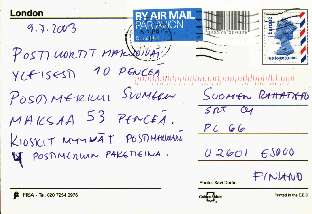 London
9.7.2003
BY AIR MAIL
PAR AVION
POSTIKORTIT MAKSAVAT
YLEISESTI 10 PENCEÄ
POSTIMERKKI SUOMEEN
MAKSAA 53 PENCEÄ.
KIOSKIT MYYVÄT POSTIMERKKEJÄ
4 POSTIMERKIN PAKETEINA.
SUOMEN RAHATIETO
PL 66
02601 ESPOO
FINLAND
Printed in the E.E.C